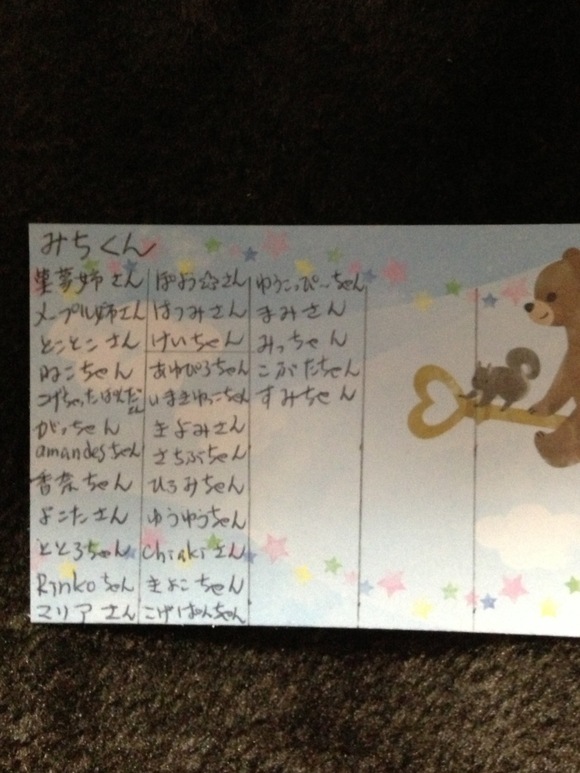 みちくん
メープル姉さん
とことこさん
ねこちゃん
がっちゃん
amandesちゃん
香奈ちゃん
よこたさん
ととろちゃん
Rinkoちゃん
マリアさん
ぽよ☆さん
はつみさん
けいちゃん
あゆぴろちゃん
いまきゅっこちゃん
きよみさん
さちぶちゃん
ひろみちゃん
ゆうゆうちゃん
chiakiさん
きよこちゃん
こげぱんちゃん
ゆうこっぴーちゃん
まみさん
みっちゃん
こぶたちゃん
すみちゃん